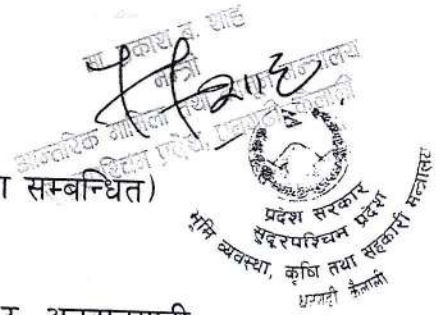 मा. प्रकाश ब. शाह
मन्त्री
आन्तरिक मामिला तथा कानून मन्त्रालय
सुदूरपश्चिम प्रदेश, धनगढी कैलाली
सम्बन्धित)
प्रदेश सरकार
सुदूरपश्चिम प्रदेश
भूमि व्यवस्था, कृषि तथा सहकारी मन्त्रालय
धनगढी कैलाली